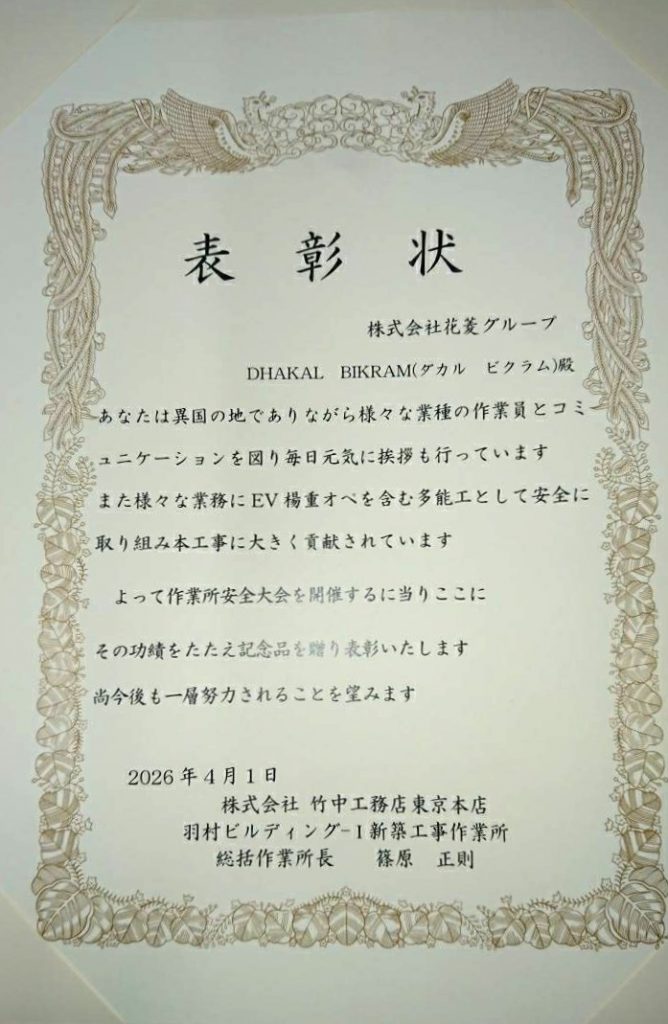 表彰状
株式会社花菱グループ
DHAKAL BIKRAM(ダカル ビクラム)殿
あなたは異国の地でありながら様々な業種の作業員とコミ
ュニケーションを図り毎日元気に挨拶も行っています
また様々な業務にEV楊重オペを含む多能工として安全に
取り組み本工事に大きく貢献されています
よって作業所安全大会を開催するに当りここに
その功績をたたえ記念品を贈り表彰いたします
尚今後も一層努力されることを望みます
2026年4月1日
株式会社 竹中工務店東京本店
羽村ビルディング-I新築工事作業所
総括作業所長 篠原 正則